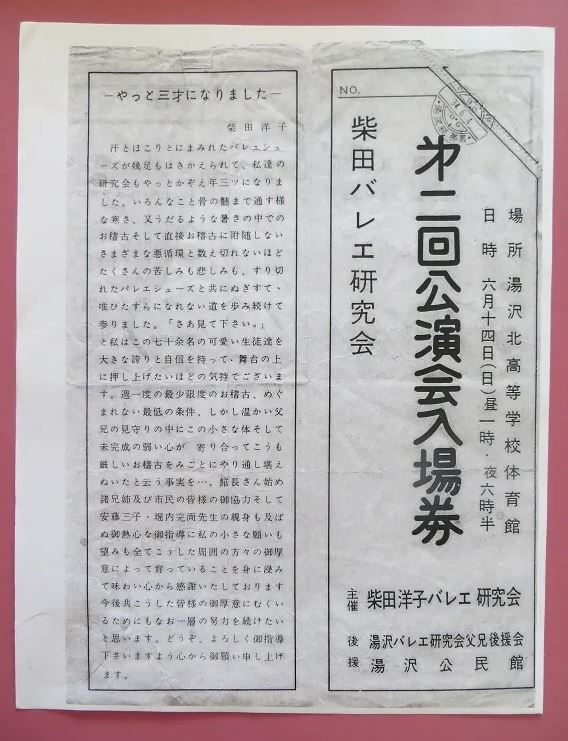 NO.
第二回公演会入場券
柴田バレエ研究会
場所 湯沢北高等学校体育館
日時 六月十四日(日)昼一時・夜六時半
主催 柴田洋子バレエ研究会
後援 湯沢バレエ研究会父兄後援会
湯沢公民館
―やっと三才になりました―
柴田洋子
汗とほこりとにまみれたバレエシュ
ーズが幾足もはきかえられて、私達の
研究会もやっとかぞえ年三ツになりま
した。いろんなこと骨の髄まで通す様
な寒さ、又うだるような暑さの中での
お稽古そして直接お稽古に附随しない
さまざまな悪循環と数え切れないほど
たくさんの苦しみも悲しみも、すり切
れたバレエシューズと共にぬぎすて、
唯ひたすらになれない道を歩み続けて
参りました。「さあ見て下さい。」
と私はこの七十余名の可愛い生徒達を
大きな誇りと自信を持って、舞台の上
に押し上げたいほどの気持でございま
す。週一度の最少限度のお稽古、めぐ
まれない最低の条件、しかし温かい父
兄の見守りの中にこの小さな体そして
未完成の弱い心が 寄り合ってこうも
厳しいお稽古をみごとにやり通し堪え
ぬいたと云う事実を…。館長さん始め
諸兄姉及び市民の皆様の御協力そして
安藤三子・堀内完両先生の親身も及ば
ぬ御熱心な御指導に私の小さな願いも
望みも全てこうした周囲の方々の御厚
意によって育っていることを身に浸み
て味わい心から感謝いたしております
今後共こうした皆様の御厚意にむくい
るためにもなお一層の努力を続けたい
と思います。どうぞ、よろしく御指導
下さいますよう心から御願い申し上げ
ます。